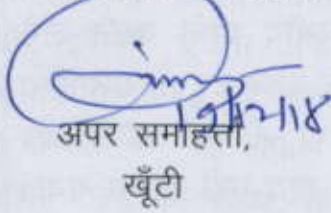 19/12/18
अपर समाहर्ता,
खूँटी